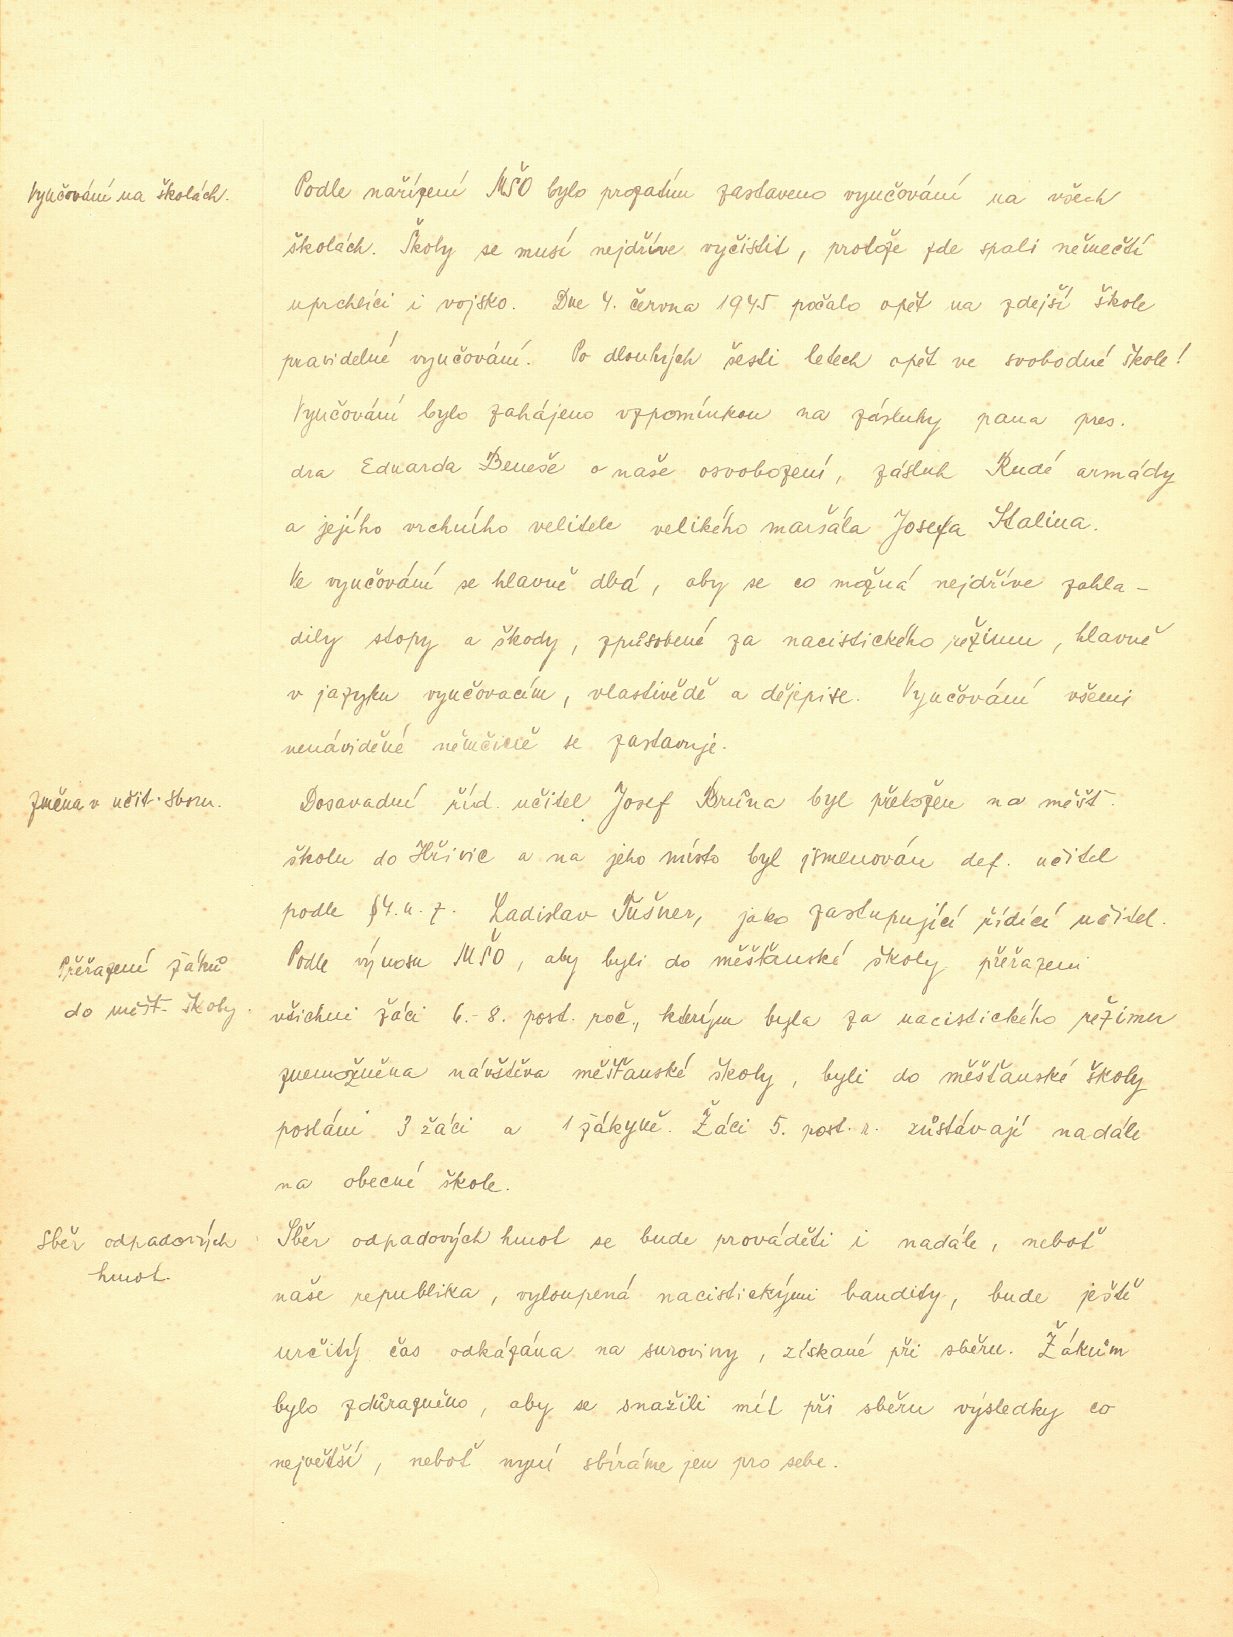 Vyučování na školách.
Podle nařízení MŠO bylo prozatím zastaveno vyučování na všech
školách. Školy se musí nejdříve vyčistit, protože zde spali němečtí
uprchlíci i vojsko. Dne 4. června 1945 počalo opět na zdejší škole
pravidelné vyučování. Po dlouhých šesti letech opět ve svobodné škole!
Vyučování bylo zahájeno vzpomínkou na zásluhy pana pres.
dra Eduarda Beneše o naše osvobození, zásluh Rudé armády
a jejího vrchního velitele velikého maršála Josefa Stalina.
Ve vyučování se hlavně dbá, aby se co možná nejdříve zahla-
dily stopy a škody, způsobené za nacistického režimu, hlavně
v jazyku vyučovacím, vlastivědě a dějepise. Vyučování všemi
nenáviděné němčině se zastavuje.
Změna v učit. sboru.
Dosavadní říd. učitel Josef Brůna byl přeložen na měšť.
školu do Hřivic a na jeho místo byl jmenován def. učitel
podle §4. u. z. Ladislav Tušner, jako zastupující řídící učitel.
Přeřazení žáků
do měšť. školy.
Podle výnosu MŠO, aby byli do měšťanské školy přeřazeni
všichni žáci 6.-8. post. roč., kterým byla za nacistického režimu
znemožněna návštěva měšťanské školy, byli do měšťanské školy
posláni 3 žáci a 1 žákyně. Žáci 5. post. r. zůstávají nadále
na obecné škole.
Sběr odpadových
hmot.
Sběr odpadových hmot se bude prováděti i nadále, neboť
naše republika, vyloupená nacistickými bandity, bude ještě
určitý čas odkázána na suroviny, získané při sběru. Žákům
bylo zdůrazněno, aby se snažili mít při sběru výsledky co
největší, neboť nyní sbíráme jen pro sebe.